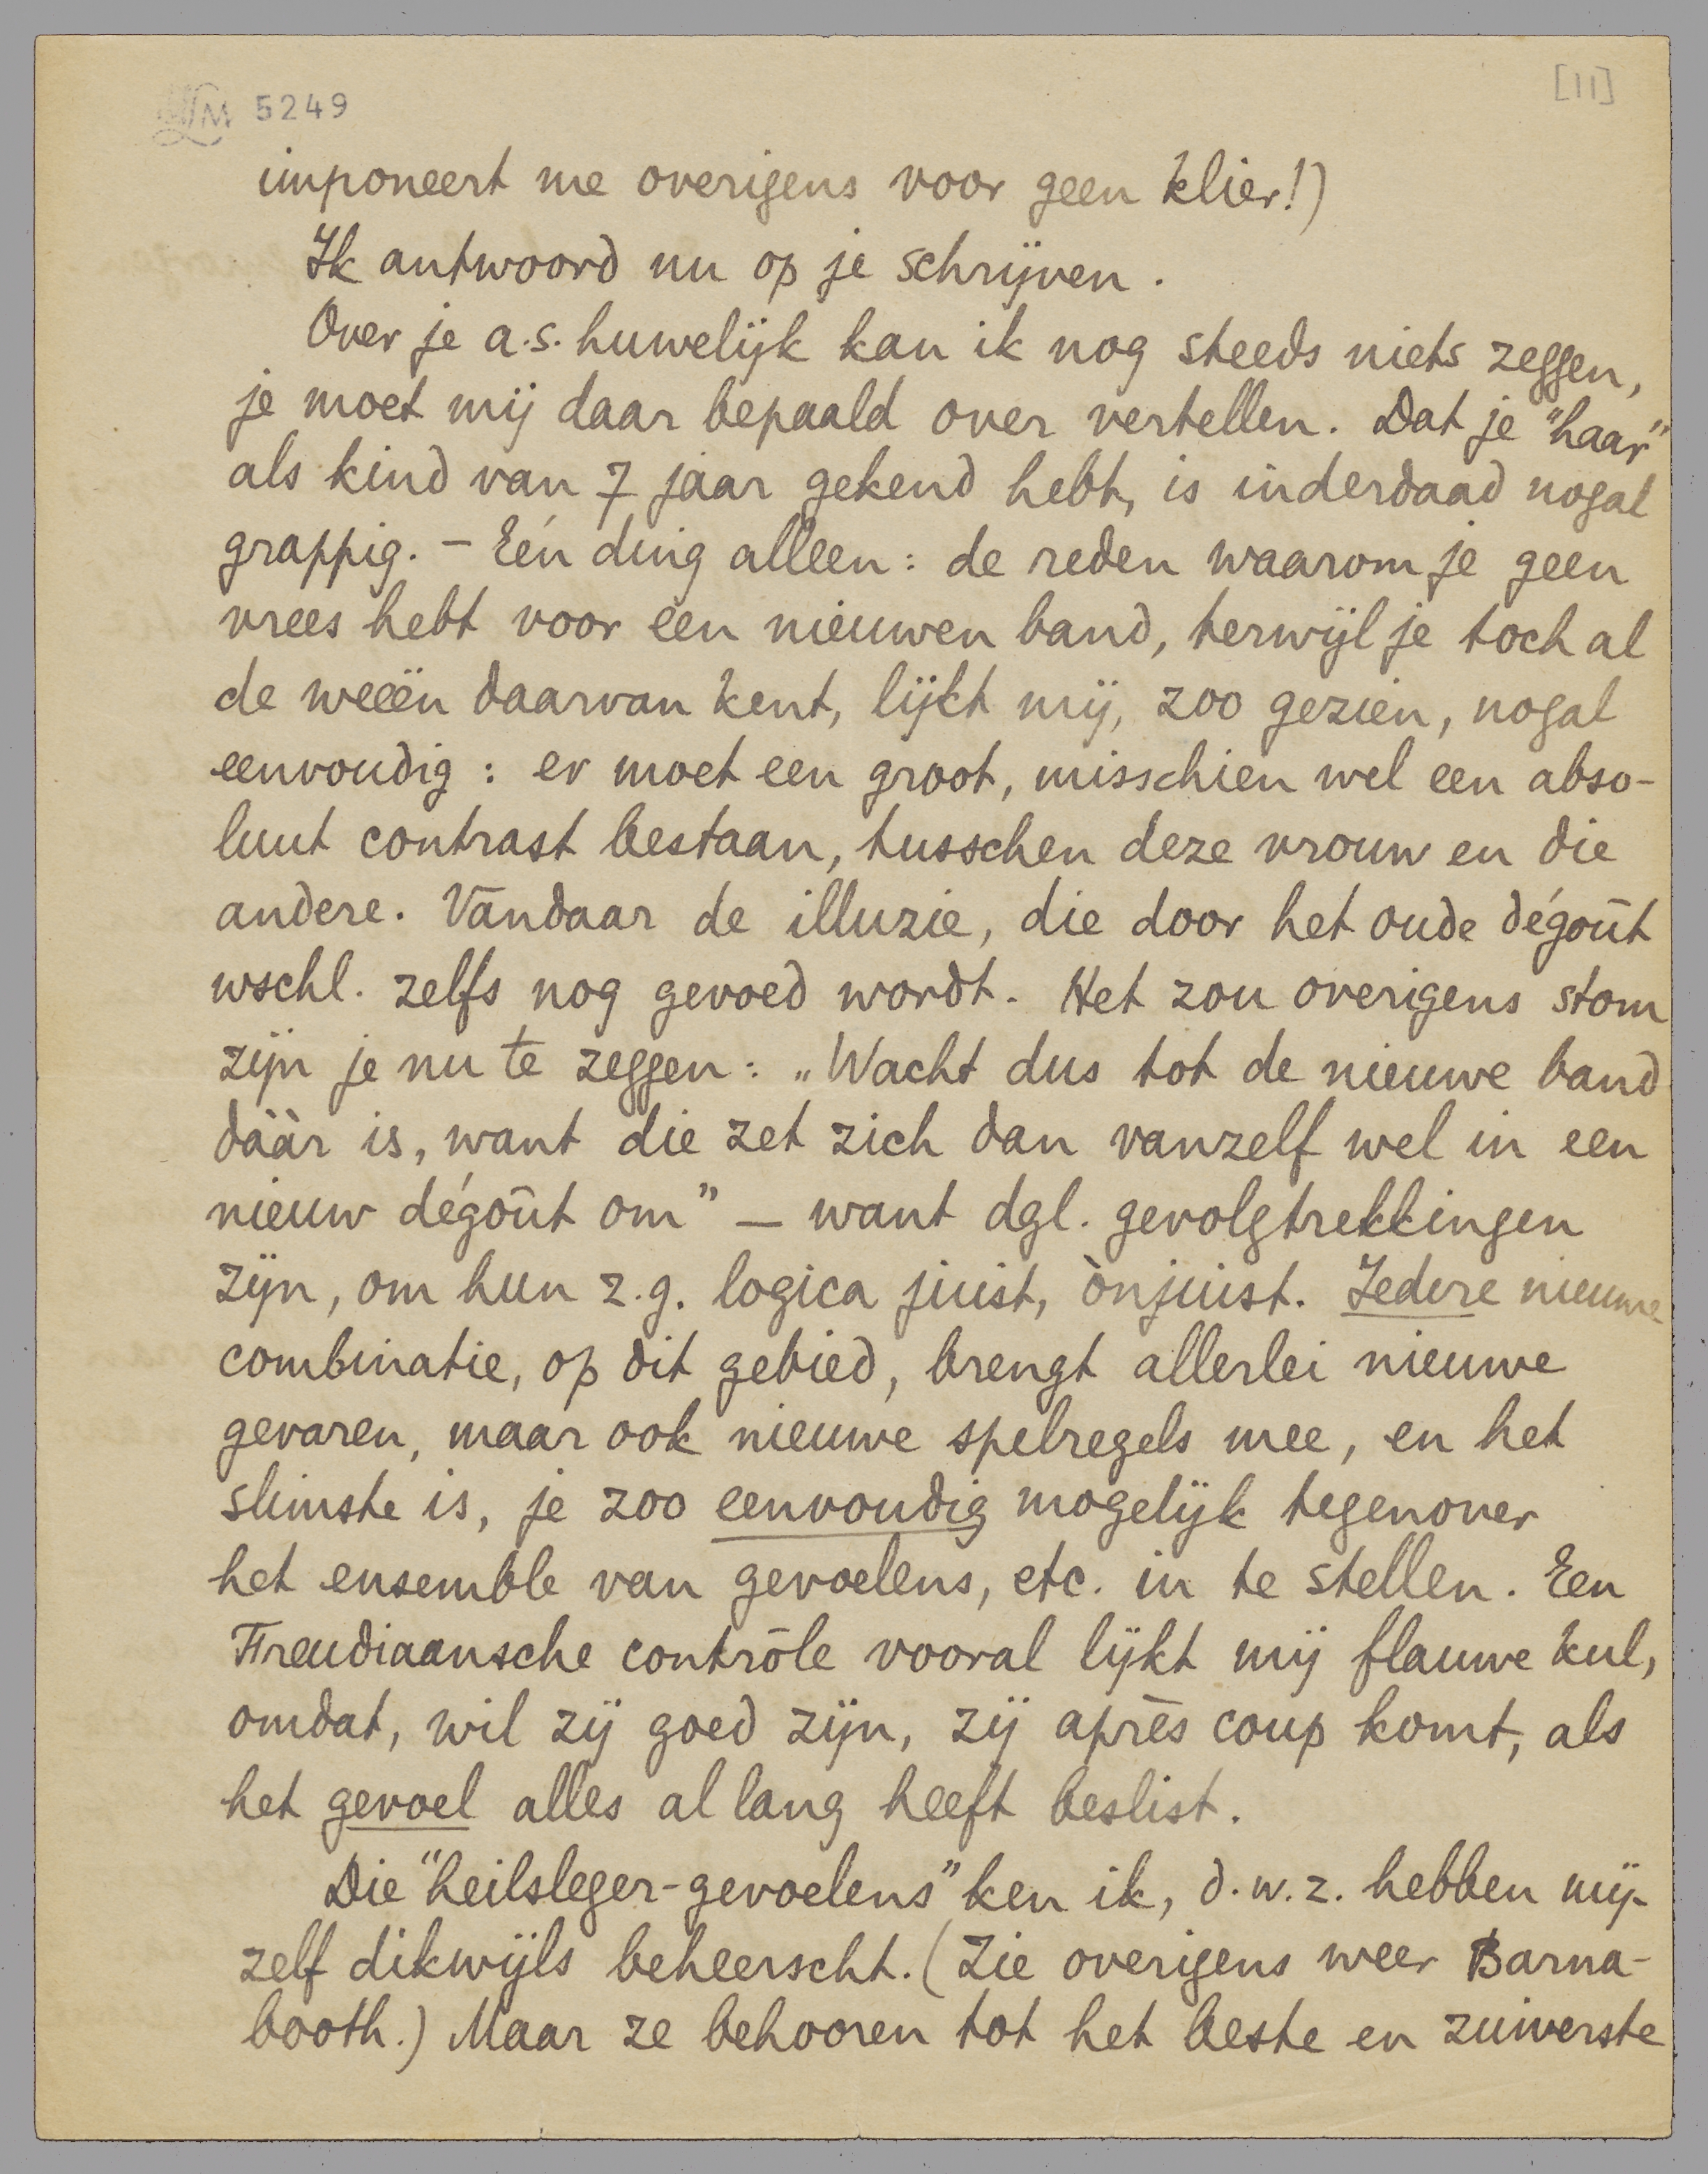 LM 5249
[11]
imponeert me overigens voor geen klier!)
Ik antwoord nu op je schrijven.
Over je a.s. huwelijk kan ik nog steeds niets zeggen,
je moet mij daar bepaald over vertellen. Dat je "haar"
als kind van 7 jaar gekend hebt, is inderdaad nogal
grappig. – Eén ding alleen: de reden waarom je geen
vrees hebt voor een nieuwen band, terwijl je toch al
de weeën daarvan kent, lijkt mij, zoo gezien, nogal
eenvoudig: er moet een groot, misschien wel een abso-
luut contrast bestaan, tusschen deze vrouw en die
andere. Vandaar de illuzie, die door het oude dégoût
wschl. zelfs nog gevoed wordt. Het zou overigens stom
zijn je nu te zeggen: „Wacht dus tot de nieuwe band
dààr is, want die zet zich dan vanzelf wel in een
nieuw dégoût om" — want dgl. gevolgtrekkingen
zijn, om hun z.g. logica juist, ònjuist. Iedere nieuwe
combinatie, op dit gebied, brengt allerlei nieuwe
gevaren, maar ook nieuwe spelregels mee, en het
slimste is, je zoo eenvoudig mogelijk tegenover
het ensemble van gevoelens, etc. in te stellen. Een
Freudiaansche contrôle vooral lijkt mij flauwe kul,
omdat, wil zij goed zijn, zij après coup komt, als
het gevoel alles al lang heeft beslist.
Die "heilsleger-gevoelens" ken ik, d.w.z. hebben mij-
zelf dikwijls beheerscht. (Zie overigens weer Barna-
booth.) Maar ze behooren tot het beste en zuiverste